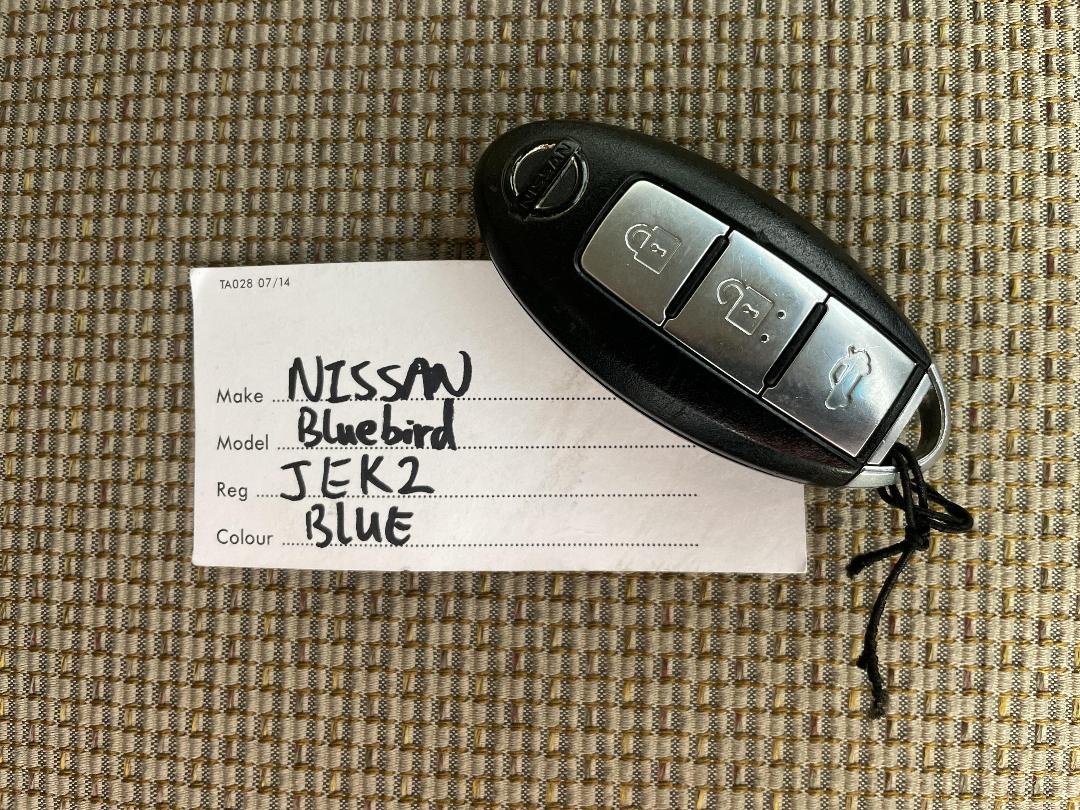 NISSAN
TA028 07/14
Make NISSAN
Model Bluebird
Reg JEK2
Colour BLUE